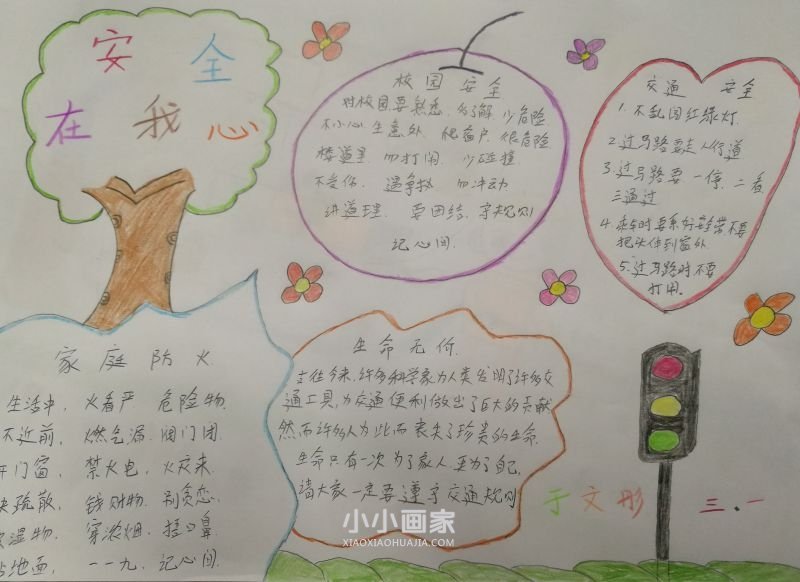 安全
在我心
校园安全
对校园要熟悉,多了解 少危险
不小心 生意外 爬窗户 很危险
楼道里 勿打闹 少碰撞
不受伤 遇争执 勿冲动
讲道理 要团结 守规则
记心间.
交通安全
1.不乱闯红绿灯.
2.过马路要走人行道
3.过马路要一停、二看
三通过
4.乘车时要系好安全带不要
把头伸到窗外
5.过马路时不要
打闹。
家庭防火
生活中, 火看严 危险物.
不近前, 燃气漏. 阀门闭.
开门窗, 禁火电, 火灾来.
快疏散, 钱财物. 别贪恋.
湿物. 穿浓烟. 捂口鼻
贴地面, 一一九、记心间.
生命无价.
古往今来,许多科学家为人类发明了许多交
通工具,为交通便利做出了巨大的贡献
然而许多人为此而丧失了珍贵的生命.
生命只有一次为了家人,更为了自己,
请大家一定要遵守交通规则
于文彤 三.一
小小画家
XIAOXIAOHUAJIA.COM